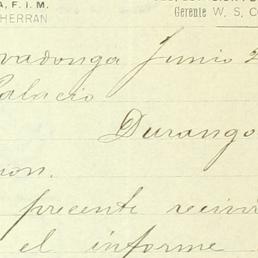 A, F. I. M.
HERRAN
Gerente W. S. CO
vadonga Junio 2
Palacio
Durango
on.
precente reciviri
el informe